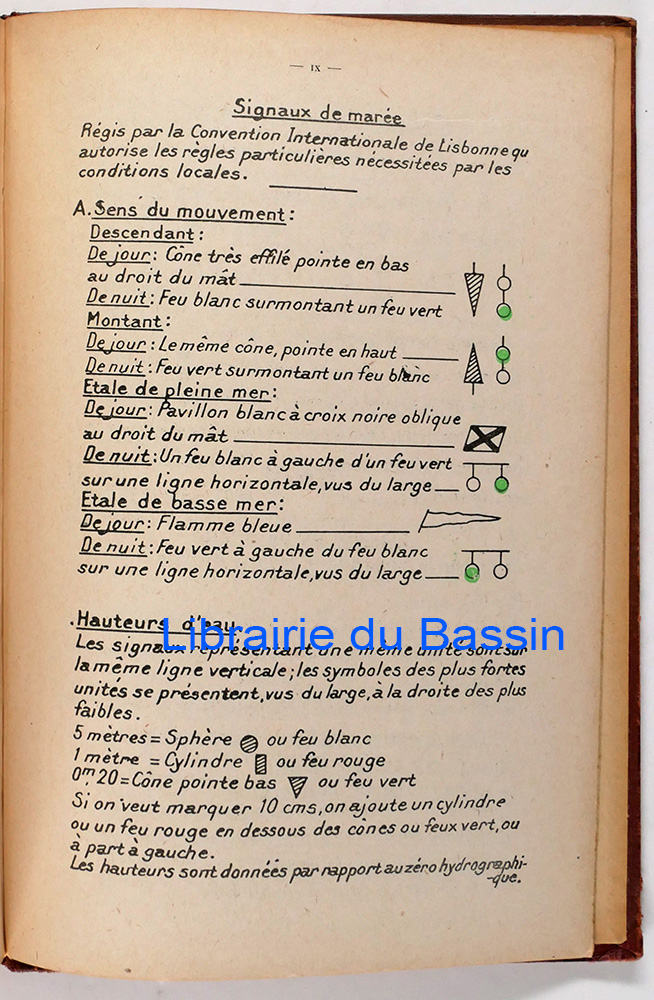 — IX —
Signaux de marée
Régis par la Convention Internationale de Lisbonne qu
autorise les règles particulières nécessitées par les
conditions locales.
A. Sens du mouvement :
Descendant :
De jour : Cône très effilé pointe en bas
au droit du mât
De nuit : Feu blanc surmontant un feu vert
Montant :
De jour : Le même cône, pointe en haut
De nuit : Feu vert surmontant un feu blanc
Etale de pleine mer :
De jour : Pavillon blanc à croix noire oblique
au droit du mât
De nuit : Un feu blanc à gauche d'un feu vert
sur une ligne horizontale, vus du large
Etale de basse mer :
De jour : Flamme bleue
De nuit : Feu vert à gauche du feu blanc
sur une ligne horizontale, vus du large
. Hauteurs d'eau.
Librairie du Bassin
Les signaux représentant une même unité sont sur
la même ligne verticale ; les symboles des plus fortes
unités se présentent, vus du large, à la droite des plus
faibles.
5 mètres = Sphère ou feu blanc
1 mètre = Cylindre ou feu rouge
0m,20 = Cône pointe bas ou feu vert
Si on veut marquer 10 cms, on ajoute un cylindre
ou un feu rouge en dessous des cônes ou feux vert, ou
à part à gauche.
Les hauteurs sont données par rapport au zéro hydrographi-
-que.